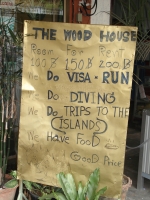 THE WOOD HOUSE
Room For Rent
100 B 150 B 200 B
We Do VISA - RUN
We Do DIVING
We Do TRIPS TO THE
ISLANDS
We Have FooD
GooD Price